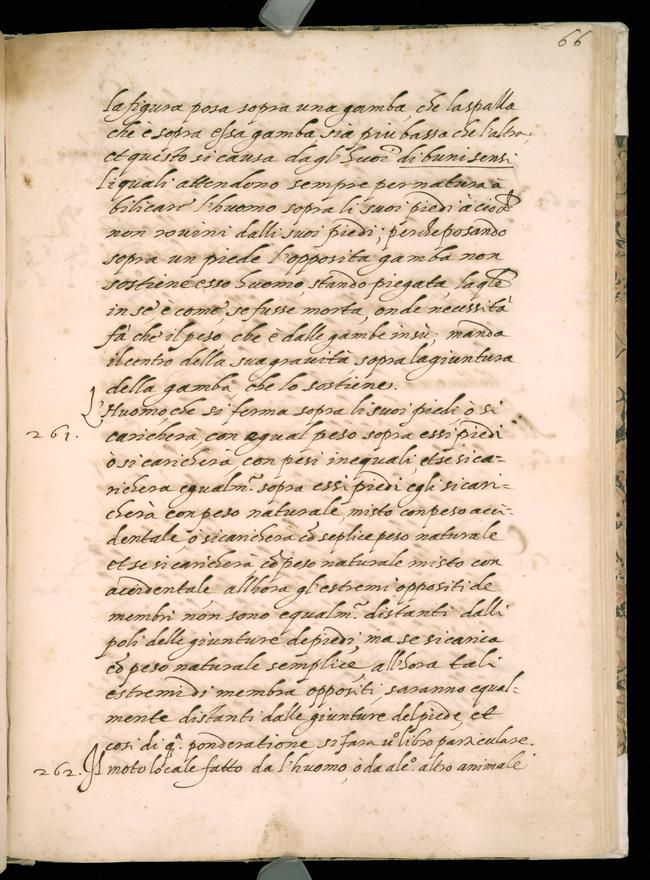 66
la figura posa sopra una gamba, che la spalla
che è sopra essa gamba sia piu bassa che l'altra,
et questo si causa dagl'huoi di buni sensi
li quali attendono sempre per natura à
bilicare l'huomo sopra li suoi piedi acciò
non rovini dalli suoi piedi; perche posando
sopra un piede l'opposita gamba non
sostiene esso huomo, stando piegata, la qle
in se è come, se fusse morta, onde necessità
fà che il peso, che è dalle gambe insù; manda
il centro della sua gravità sopra la giuntura
della gamba che lo sostiene.
L'Huomo che si ferma sopra li suoi piedi, ò si
261. caricherà con egual peso sopra essi piedi
ò si caricherà con pesi inequali, et se si ca-
richera egualm.e sopra essi piedi egli si cari-
cherà con peso naturale, misto con peso acci-
dentale, ò si caricherà cō seplice peso naturale
et se si caricherà cō peso naturale misto con
accidentale allhora gl'estremi oppositi de
membri non sono equalm.e distanti dalli
poli delle giunture de piedi, ma se si carica
cō peso naturale semplice allhora tali
estremi di membra oppositi, saranno equal-
mente distanti dalle giunture del piede, et
cosi di q.a ponderatione si fara u.o libro particulare.
262. Il moto locale fatto da l'huomo, ò da alc.o altro animale